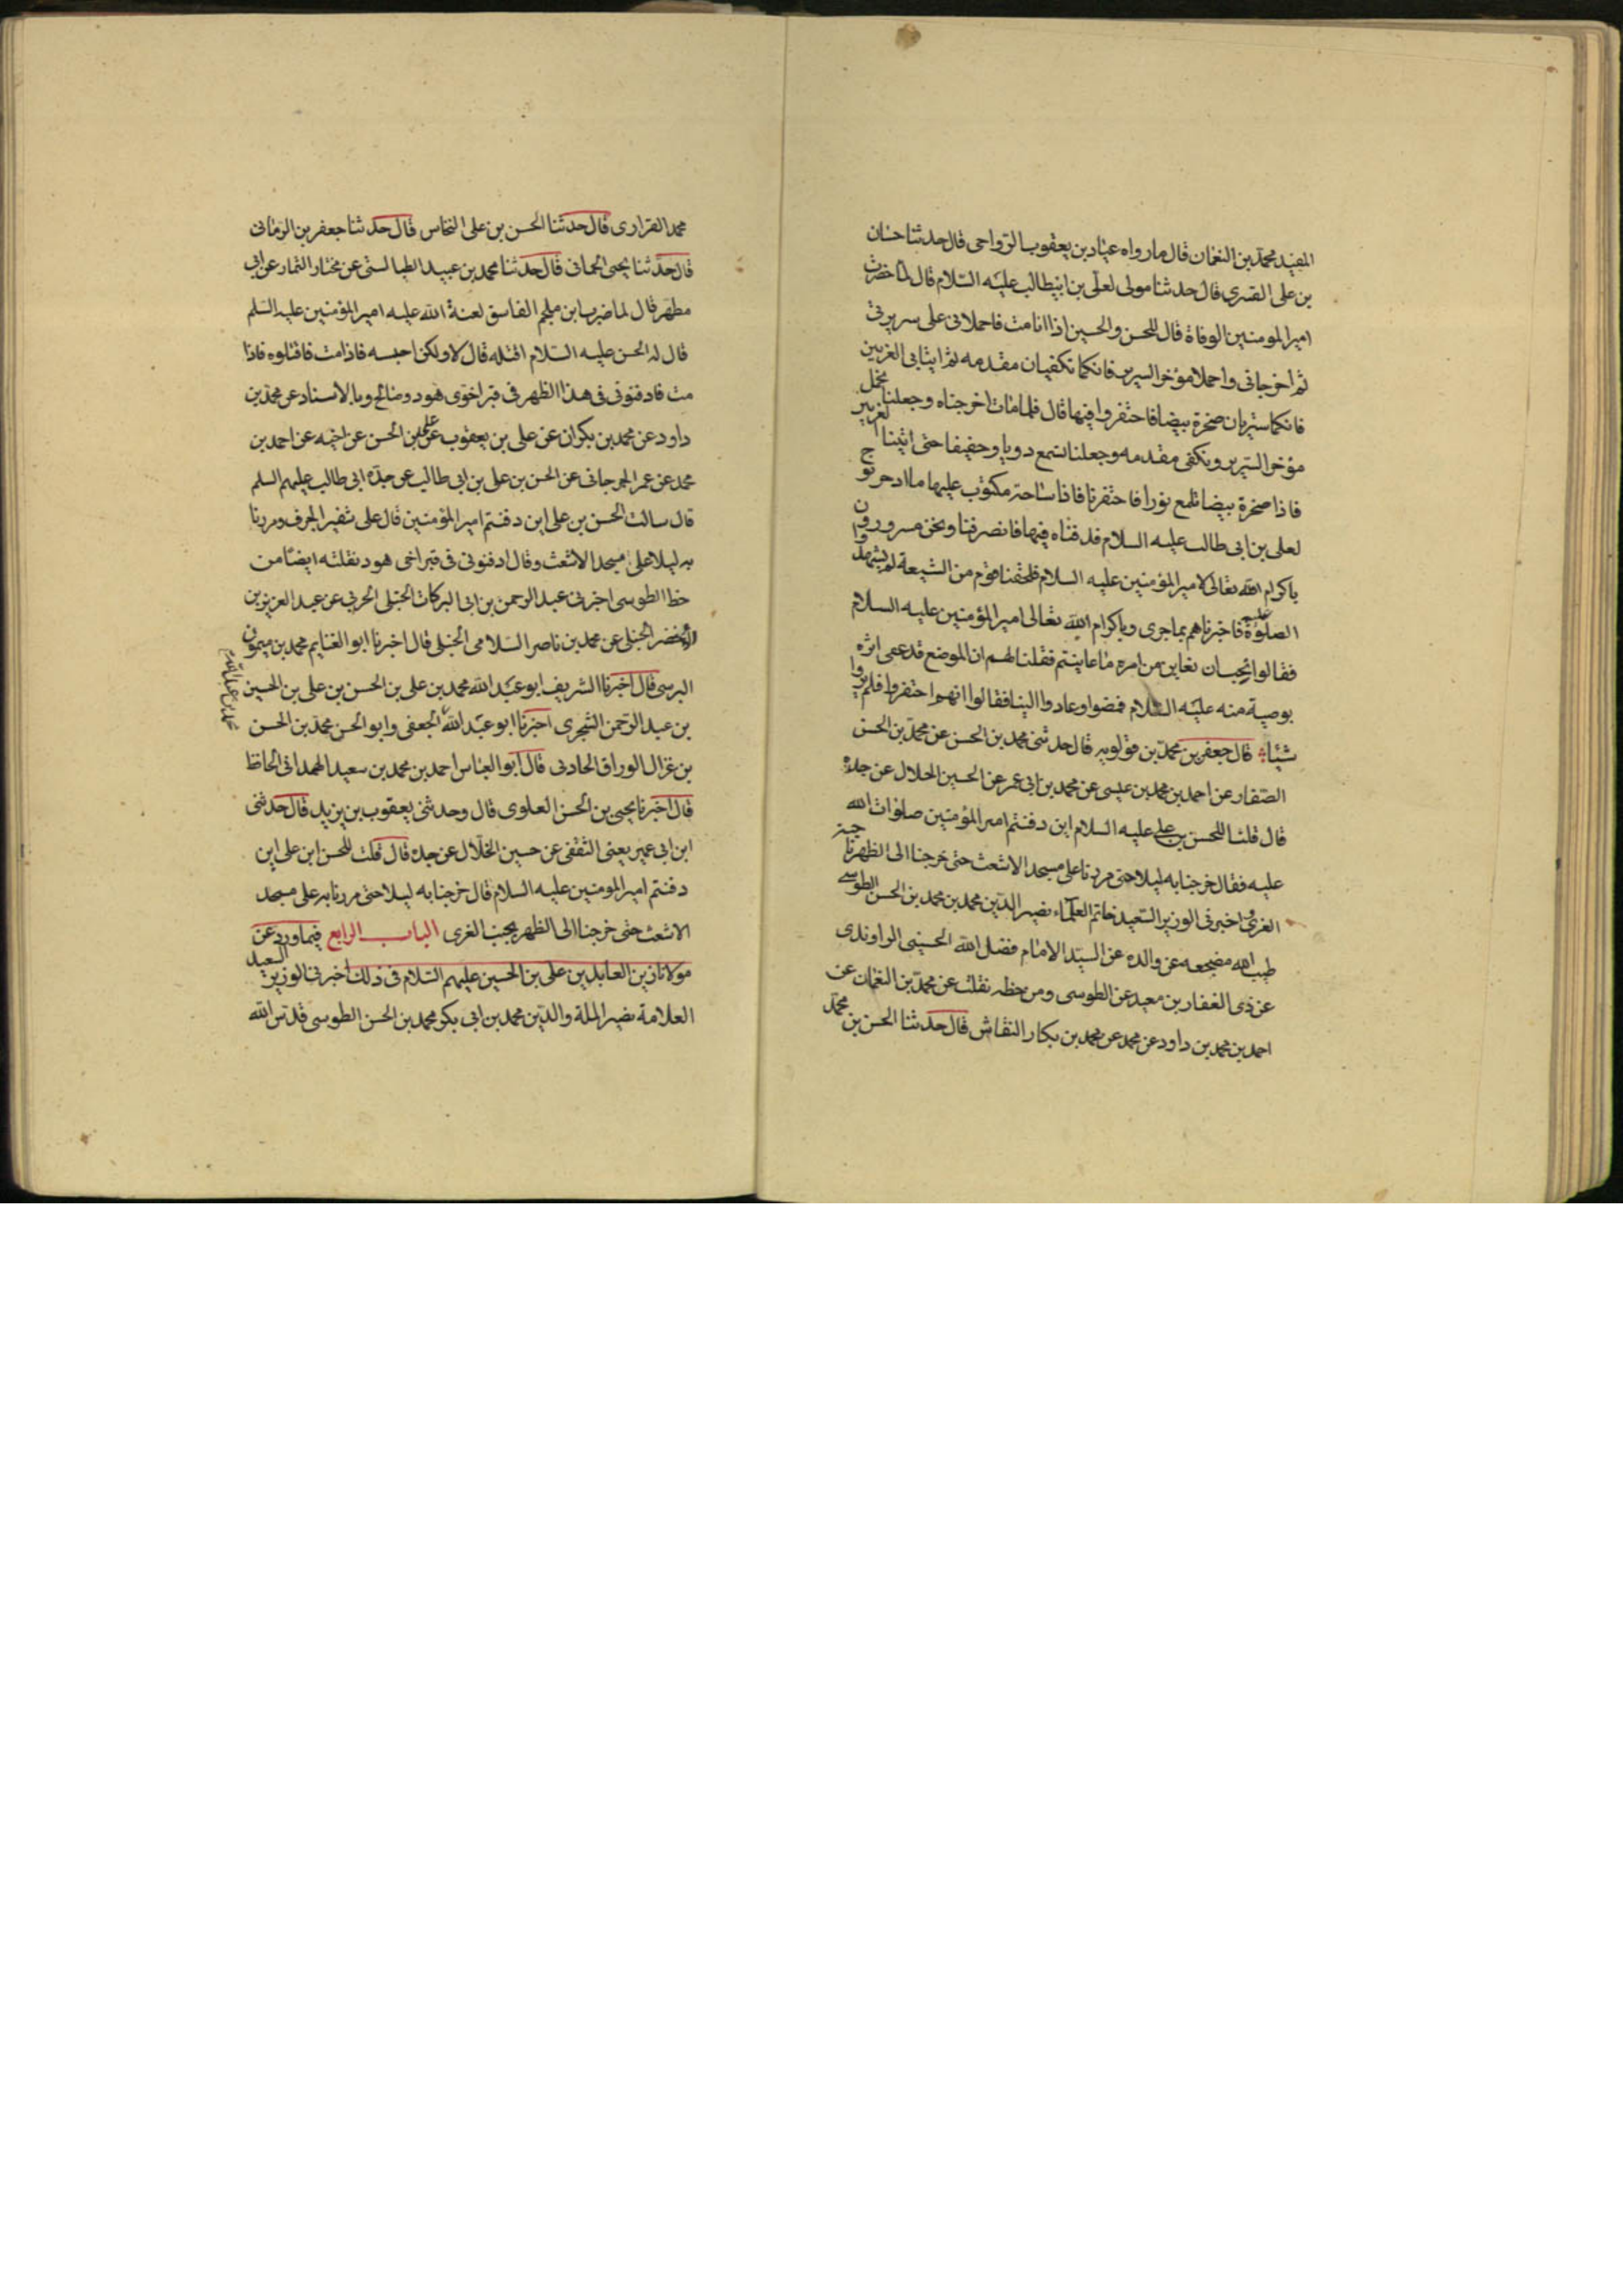 المفيد محمد بن النعمان قال ما رواه عباد بن يعقوب الرواجى قال حدثنا حسان
بن على القسرى قال حدثنا مولى لعلى بن ابيطالب عليه السلام قال لما حضرت
امير المومنين الوفاة قال للحسن والحسين اذا انا مت فاحملانى على سريرتى
ثم اخرجانى واحملا مؤخر السرير فانكما تكفيان مقدمه ثم ايتابى الغريين
فانكما ستريان صخرة بيضا فاحتفروا فيها قال فلما مات اخرجناه وجعلنا نحمل
مؤخر السرير ونكفى مقدمه وجعلنا نسمع دويا وحفيفا حتى اتينا الغريين
فاذا صخرة بيضا تلمع نورا فاحتفرنا فاذا ساحة مكتوب عليها ما ادخر نوح
لعلى بن ابى طالب عليه السلام فدفناه فيها فانصرفنا ونحن مسرورون
باكرام الله تعالى لامير المؤمنين عليه السلام فلحقنا قوم من الشيعة لم يشهدوا
الصلوة عليه فاخبرناهم بما جرى وباكرام الله تعالى امير المؤمنين عليه السلام
فقالوا نحب ان نعاين من امره ما عاينتم فقلنا لهم ان الموضع قد عمى اثره
بوصية منه عليه السلام فمضوا وعادوا الينا فقالوا انهم احتفروا فلم يروا
شيئا قال جعفر بن محمد بن قولويه قال حدثنى محمد بن الحسن عن محمد بن الحسن
الصفار عن احمد بن محمد بن عيسى عن محمد بن ابى عمر عن الحسين الخلال عن جده
قال قلنا للحسن بن على عليه السلام اين دفنتم امير المؤمنين صلوات الله
عليه فقال خرجنا به ليلا حتى مررنا على مسجد الاشعث حتى خرجنا الى الظهر بجنب
الغرى واخبرنى الوزير السعيد خاتم العلماء نصير الدين محمد بن محمد بن الحسن الطوسى
طيب الله مضجعه عن والده عن السيد الامام فضل الله الحسينى الراوندى
عن ذى الغفار بن معبد عن الطوسى ومن خطه نقلت عن محمد بن النعمان عن
احمد بن محمد بن داود عن محمد عن محمد بن بكار النقاش قال حدثنا الحسن بن محمد
محمد الفزارى قال حدثنا الحسن بن على النخاس قال حدثنا جعفر بن الرمانى
قال حدثنا يحيى الحمانى قال حدثنا محمد بن عبيد الطيالسى عن مختار التمار عن ابى
مطهر قال لما ضرب ابن ملجم الفاسق لعنة الله عليه امير المؤمنين عليه السلم
قال له الحسن عليه السلام اقتله قال لا ولكن احبسه فاذا مت فاقتلوه فاذا
مت فادفنونى فى هذا الظهر فى قبر اخوى هود وصالح وبالاسناد عن محمد بن
داود عن محمد بن بكران عن على بن يعقوب عن على بن الحسن عن اخيه عن احمد بن
محمد عن عمر الجرجانى عن الحسن بن على بن ابى طالب عن جده ابى طالب عليهم السلم
قال سالت الحسن بن على اين دفنتم امير المؤمنين قال على شفير الجرف ومررنا
به ليلا على مسجد الاشعث وقال ادفنونى فى قبر اخى هود نقلته ايضا من
خط الطوسى اخبرنى عبد الرحمن بن ابى البركات الحنبلى الحربى عن عبد العزيز بن
الاخضر الحنبلى عن محمد بن ناصر السلامى الحنبلى قال اخبرنا ابو الغنايم محمد بن ميمون
البرسى قال اخبرنا الشريف ابو عبد الله محمد بن على بن الحسن بن على بن الحسين
بن عبد الرحمن الشجرى اخبرنا ابو عبد الله الجعفى وابو الحسن محمد بن الحسن
بن غزال الوراق الحادنى قال ابو العباس احمد بن محمد بن سعيد الهمدانى الحافظ
قال اخبرنا يحيى بن الحسن العلوى قال وحدثنى يعقوب بن يزيد قال حدثنى
ابن ابى عمير يعنى الثقفى عن حسين الخلال عن جده قال قلت للحسن ابن على اين
دفنتم امير المومنين عليه السلام قال خرجنا به ليلا حتى مررنا به على مسجد
الاشعث حتى خرجنا الى الظهر بجنب الغرى الباب الرابع فيما ورد عن
مولانا زين العابدين على بن الحسين عليهم السلام فى ذلك اخبرنى الوزير السعيد
العلامة نصير الملة والدين محمد بن ابى بكر محمد بن الحسن الطوسى قدس الله